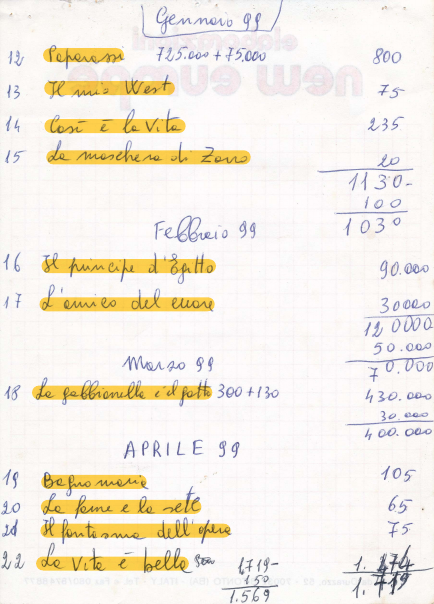 Gennaio 99
12 Paparazzi 725.000 + 75.000 800
13 Il mio West 75
14 Così è la vita 235
15 La maschera di Zorro 20
1130-
100
1030
Febbraio 99
16 Il principe d'Egitto 90.000
17 L'amico del cuore 30000
120000
50.000
70.000
Marzo 99
18 La gabbianella e il gatto 300 + 130 430.000
30.000
400.000
APRILE 99
19 Bagnomaria 105
20 La fame e la sete 65
21 Il fantasma dell'opera 75
22 La vita è bella 1719- 1.474
150 1.719
1.569